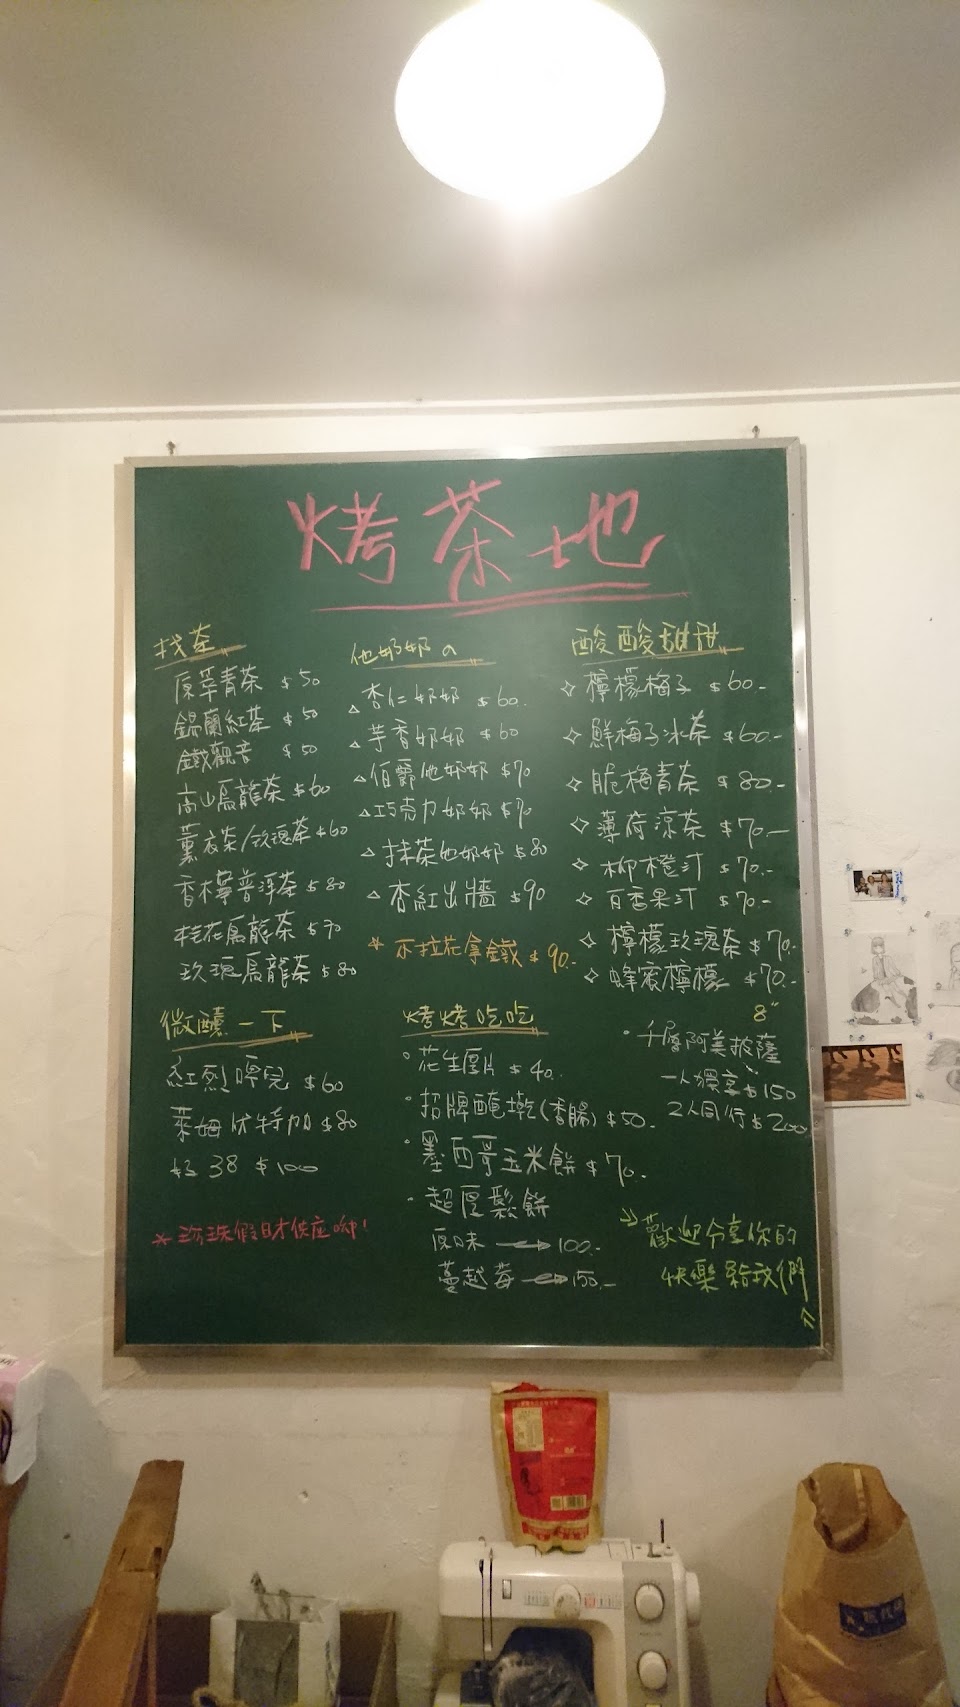 烤茶地
找茶
原萃青茶 $50
錫蘭紅茶 $50
鐵觀音 $50
高山烏龍茶 $60
薰衣茶/玫瑰茶 $60
香檸普洱茶 $80
桂花烏龍茶 $70
玫瑰烏龍茶 $80
微醺一下
紅烈啤兒 $60
萊姆伏特加 $80
好38 $100
*珍珠假日才供应呦!
他奶奶a
△杏仁奶奶 $60.
△芋香奶奶 $60
△伯爵他奶奶 $70
△巧克力奶奶 $70
△抹茶他奶奶 $80
△杏紅出牆 $90
*不拉花拿鐵 $90.-
烤烤吃吃
·花生厚片 $40.
·招牌醃墘(香腸) $50.
·墨西哥玉米餅 $70.
·超厚鬆餅
原味 → 100.-
蔓越莓 → 150.-
酸酸甜甜
✧檸檬梅子 $60.-
✧鮮梅子冰茶 $60.-
✧脆梅青茶 $80.-
✧薄荷涼茶 $70.-
✧柳橙汁 $70.-
✧百香果汁 $70.-
✧檸檬玫瑰茶 $70.-
✧蜂蜜檸檬 $70.-
8"
·千層阿美披薩
一人獨享$150
2人同行$200
歡迎分享你的
快樂給我們